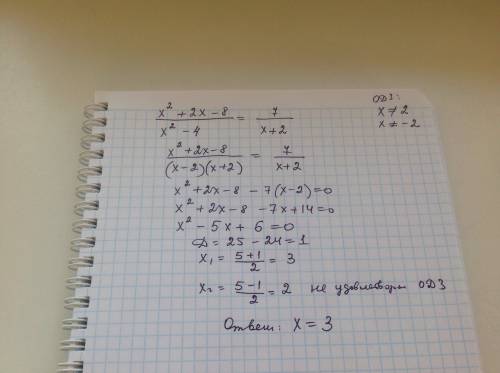 ОДЗ:
x ≠ 2
x ≠ -2
(x² + 2x - 8)/(x² - 4) = 7/(x + 2)
(x² + 2x - 8)/((x - 2)(x + 2)) = 7/(x + 2)
x² + 2x - 8 - 7(x - 2) = 0
x² + 2x - 8 - 7x + 14 = 0
x² - 5x + 6 = 0
D = 25 - 24 = 1
x₁ = (5 + 1)/2 = 3
x₂ = (5 - 1)/2 = 2 не удовлетворя ОДЗ
Ответ: x = 3